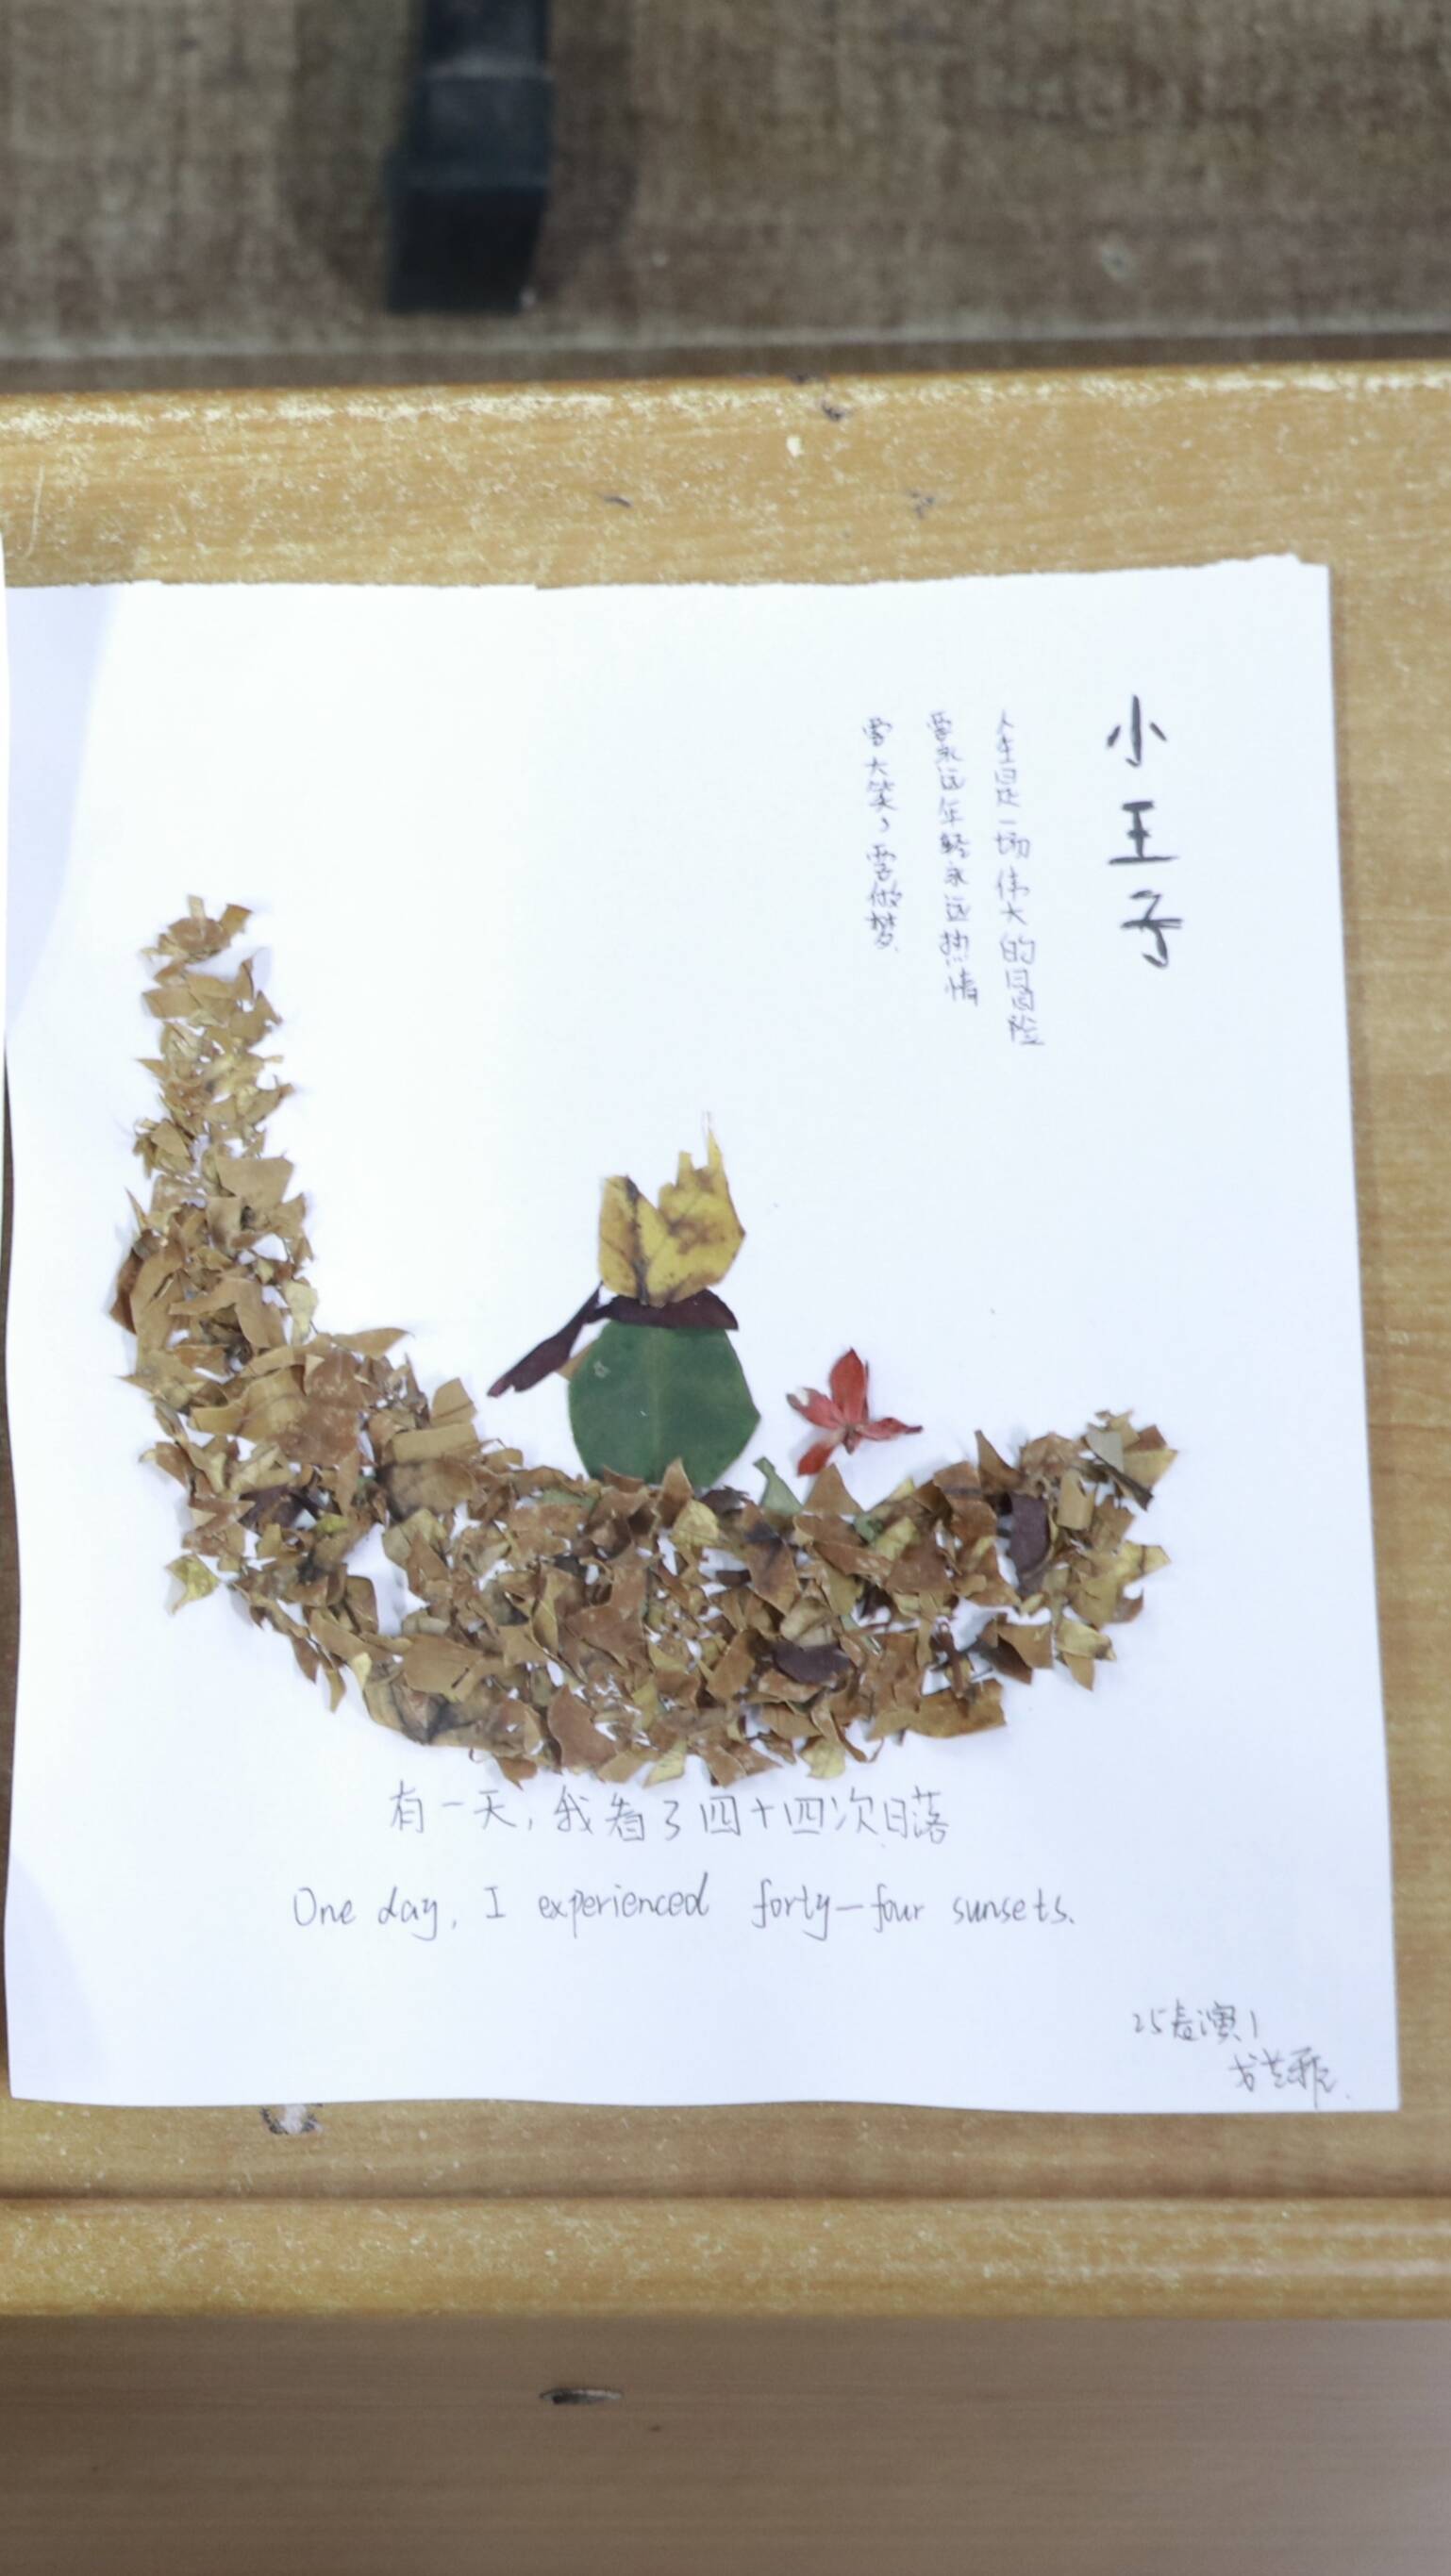 小王子
人生是一场伟大的冒险
要永远年轻永远热情
要大笑，要做梦.
有一天，我看了四十四次日落
One day, I experienced forty-four sunsets.
25表演1